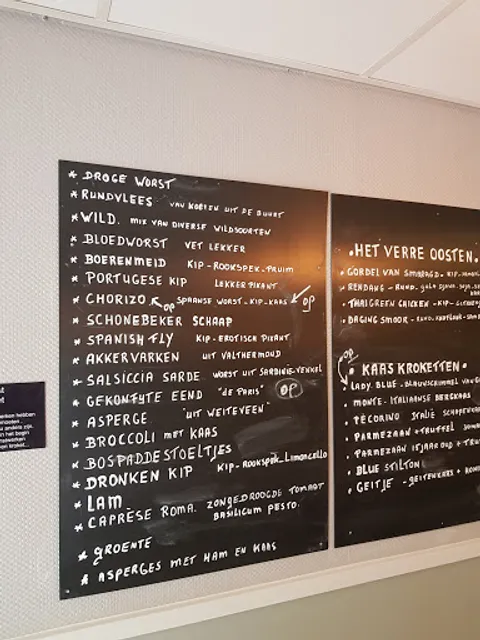 * DROGE WORST
* RUNDVLEES VAN KOEIEN UIT DE BUURT
* WILD. MIX VAN DIVERSE WILDSOORTEN
* BLOEDWORST VET LEKKER
* BOERENMEID KIP-ROOKSPEK-PRUIM
* PORTUGESE KIP LEKKER PIKANT
* CHORIZO OP SPAANSE WORST-KIP-KAAS OP
* SCHONEBEKER SCHAAP
* SPANISH FLY KIP-EROTISCH PIKANT
* AKKERVARKEN UIT VALTHERMOND
* SALSICCIA SARDE WORST UIT SARDINIE-VENKEL
* GEKONFYTE EEND "de PARIS" OP
* ASPERGE "UIT WEITEVEEN"
* BROCCOLI MET KAAS
* BOSPADDESTOELTJES
* DRONKEN KIP KIP-ROOKSPEK-LIMONCELLO
* LAM
* CAPRÈSE ROMA. ZONGEDROOGDE TOMAAT
BASILICUM PESTO.
* GROENTE
* ASPERGES MET HAM EN KAAS
.HET VERRE OOSTEN.
. GORDEL VAN SMARAGD. KIP-
. RENDANG - RUND.
. THAIGREEN CHICKEN - KIP-
. DAGING SMOOR - RUND.
OP
. KAAS KROKETTEN.
. LADY BLUE - BLAUWSCHIMMEL VAN
. MONTE - ITALIAANSE BERGKAAS
. PÈCORINO ITALIË
. PARMEZAAN + TRUFFEL
. PARMEZAAN 15 JAAR OUD +
. BLUE STILTON
. GEITJE - GEITENKAAS +